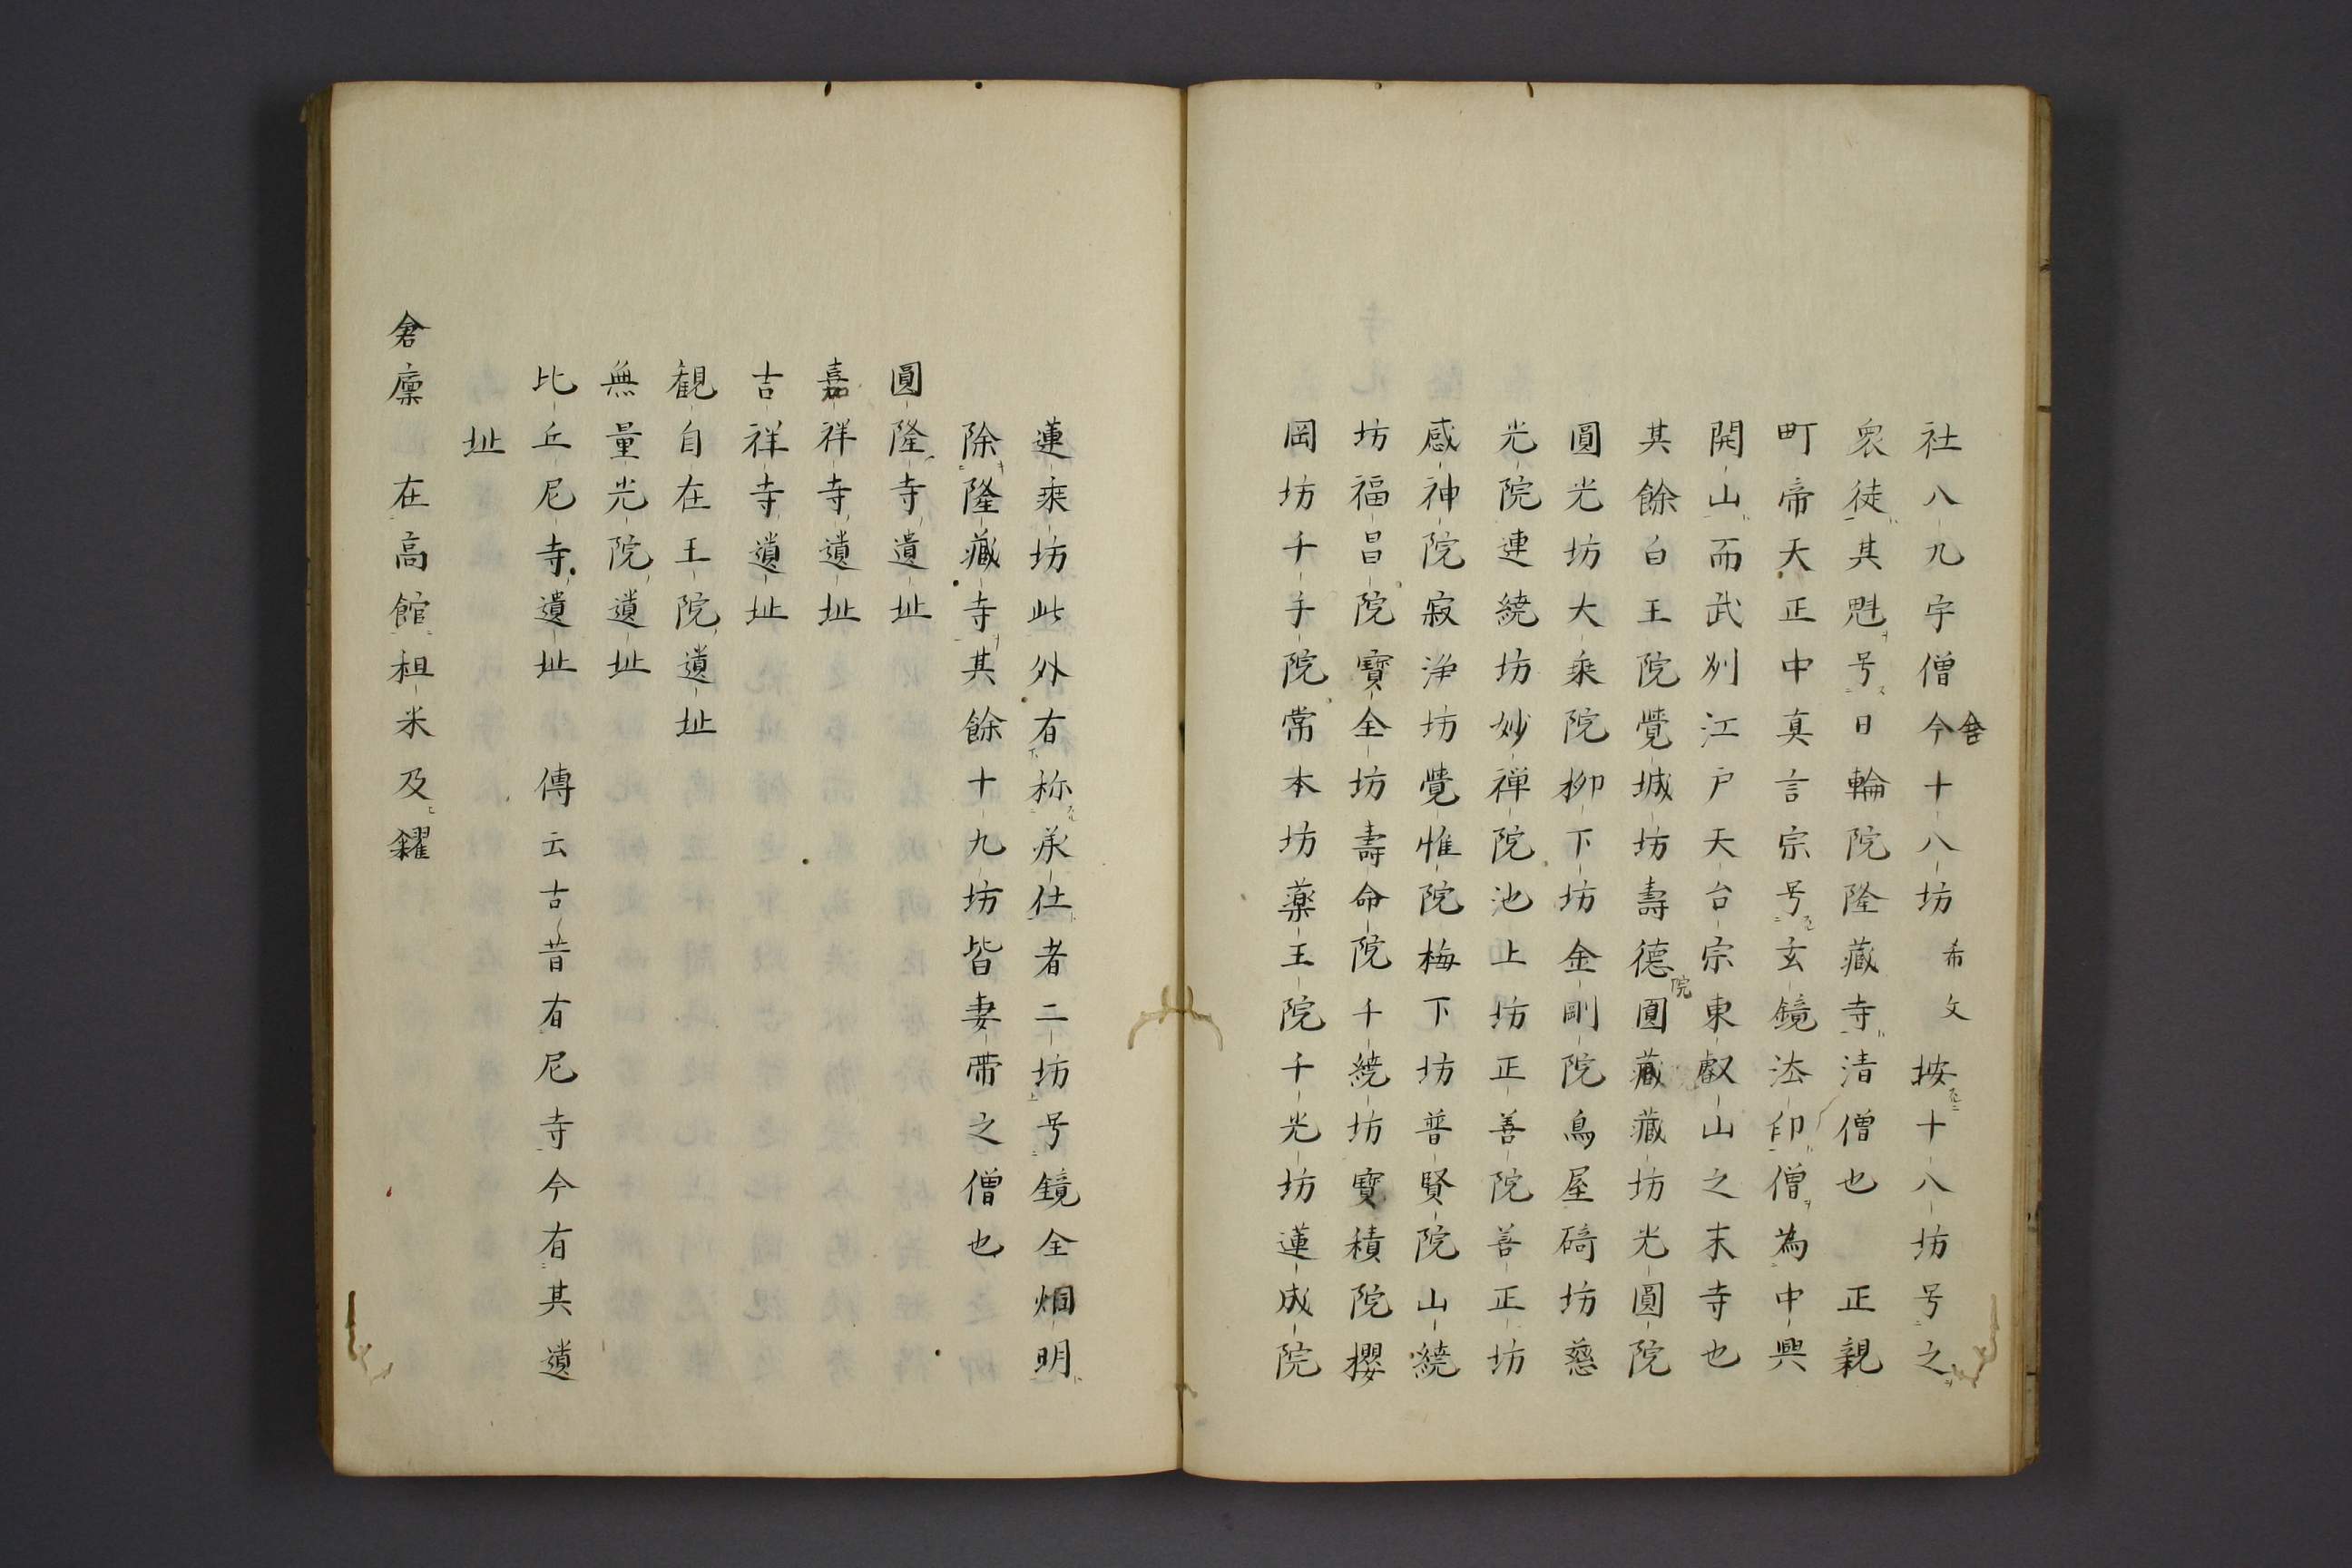 社八九宇僧今十八坊　希文　按十八坊号之
舎
衆徒其魁号日輪院隆藏寺清僧也　正親
町帝天正中真言宗号玄鏡法印僧為中興
開山而武刕江戸天台宗東叡山之末寺也
其餘白王院覺城坊壽德圓藏藏坊光圓院
院
圓光坊大乘院柳下坊金剛院鳥屋碕坊慈
光院連繞坊妙禅院池上坊正善院善正坊
感神院寂浄坊覺惟院梅下坊普賢院山繞
坊福昌院寶全坊壽命院千繞坊寶積院櫻
岡坊千手院常本坊薬王院千光坊蓮成院
蓮乘坊此外有称承仕者二坊号鏡全烟明
除隆藏寺其餘十九坊皆妻帶之僧也
圓隆寺遺址
嘉祥寺遺址
吉祥寺遺址
觀自在王院遺址
無量光院遺址
比丘尼寺遺址　傳云古昔有尼寺今有其遺
址
倉廩　在高館租米及糴